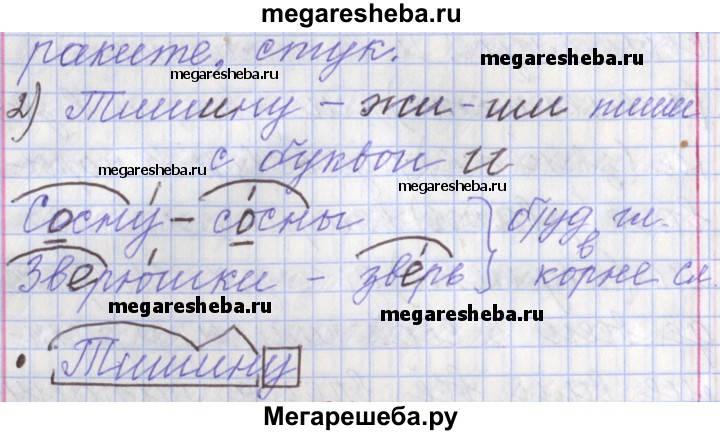 megaresheba.ru
раките, стук.
megaresheba.ru
megaresheba.ru
2) Тишину – жи-ши пиши
с буквой и
megaresheba.ru
megaresheba.ru
Сосну́ – со́сны } б/уд гл.
в
Зверю́шки – зве́рь } корне сл.
megaresheba.ru
megaresheba.ru
• Тишину
megaresheba.ru
Мегарешеба.ру